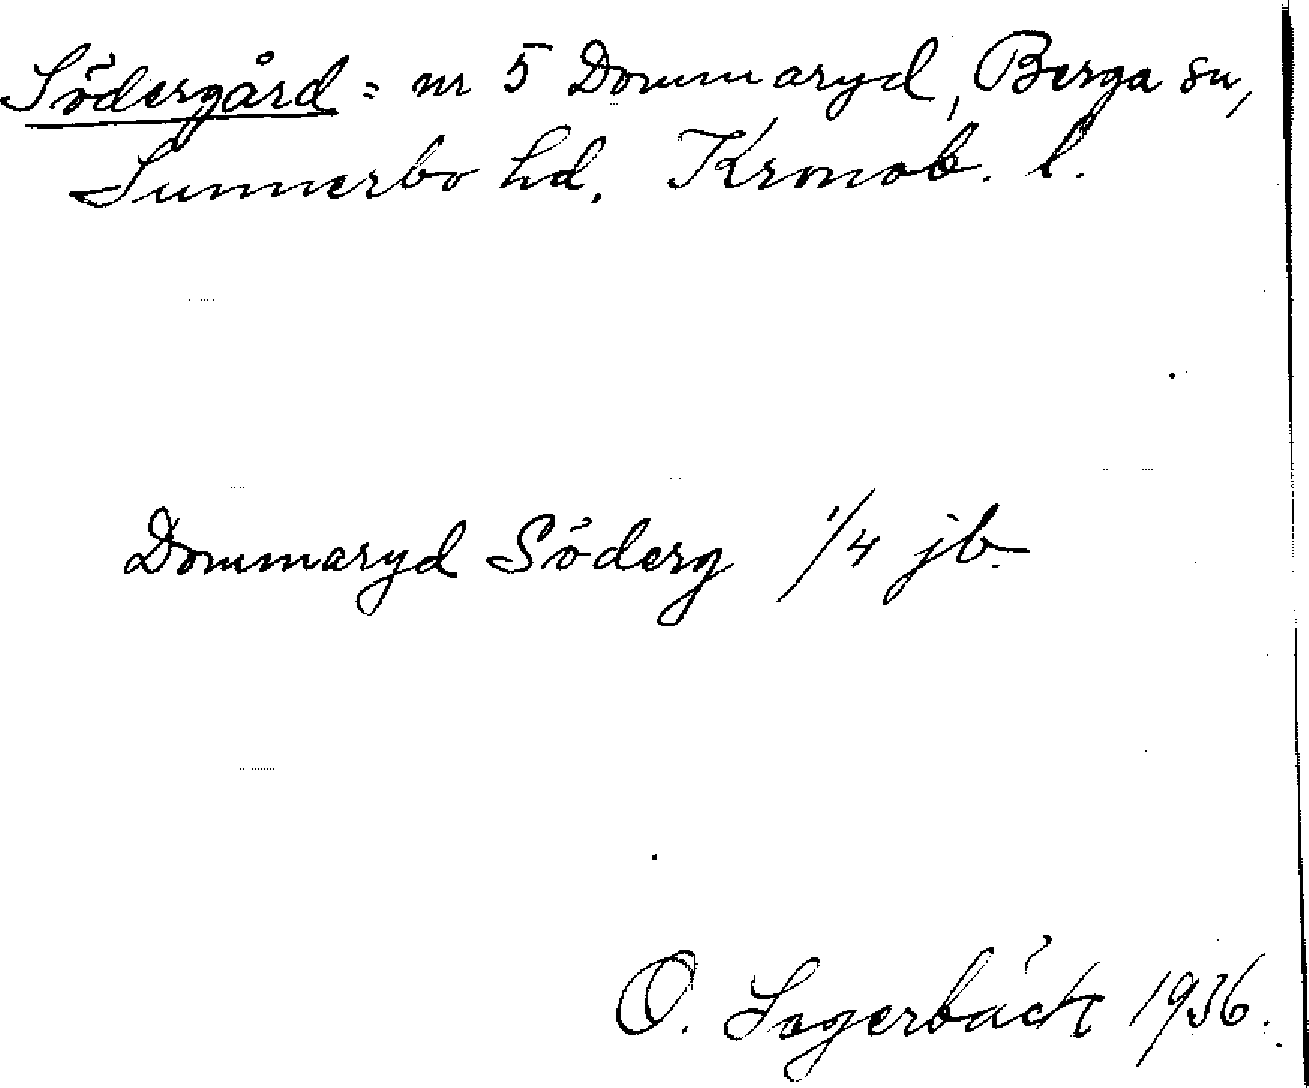 Södergård = nr 5 Dommaryd, Berga sn,
Sunnerbo hd. Kronob. l.
Dommaryd Söderg 1/4 jb.
O. Lagerbäck 1936.